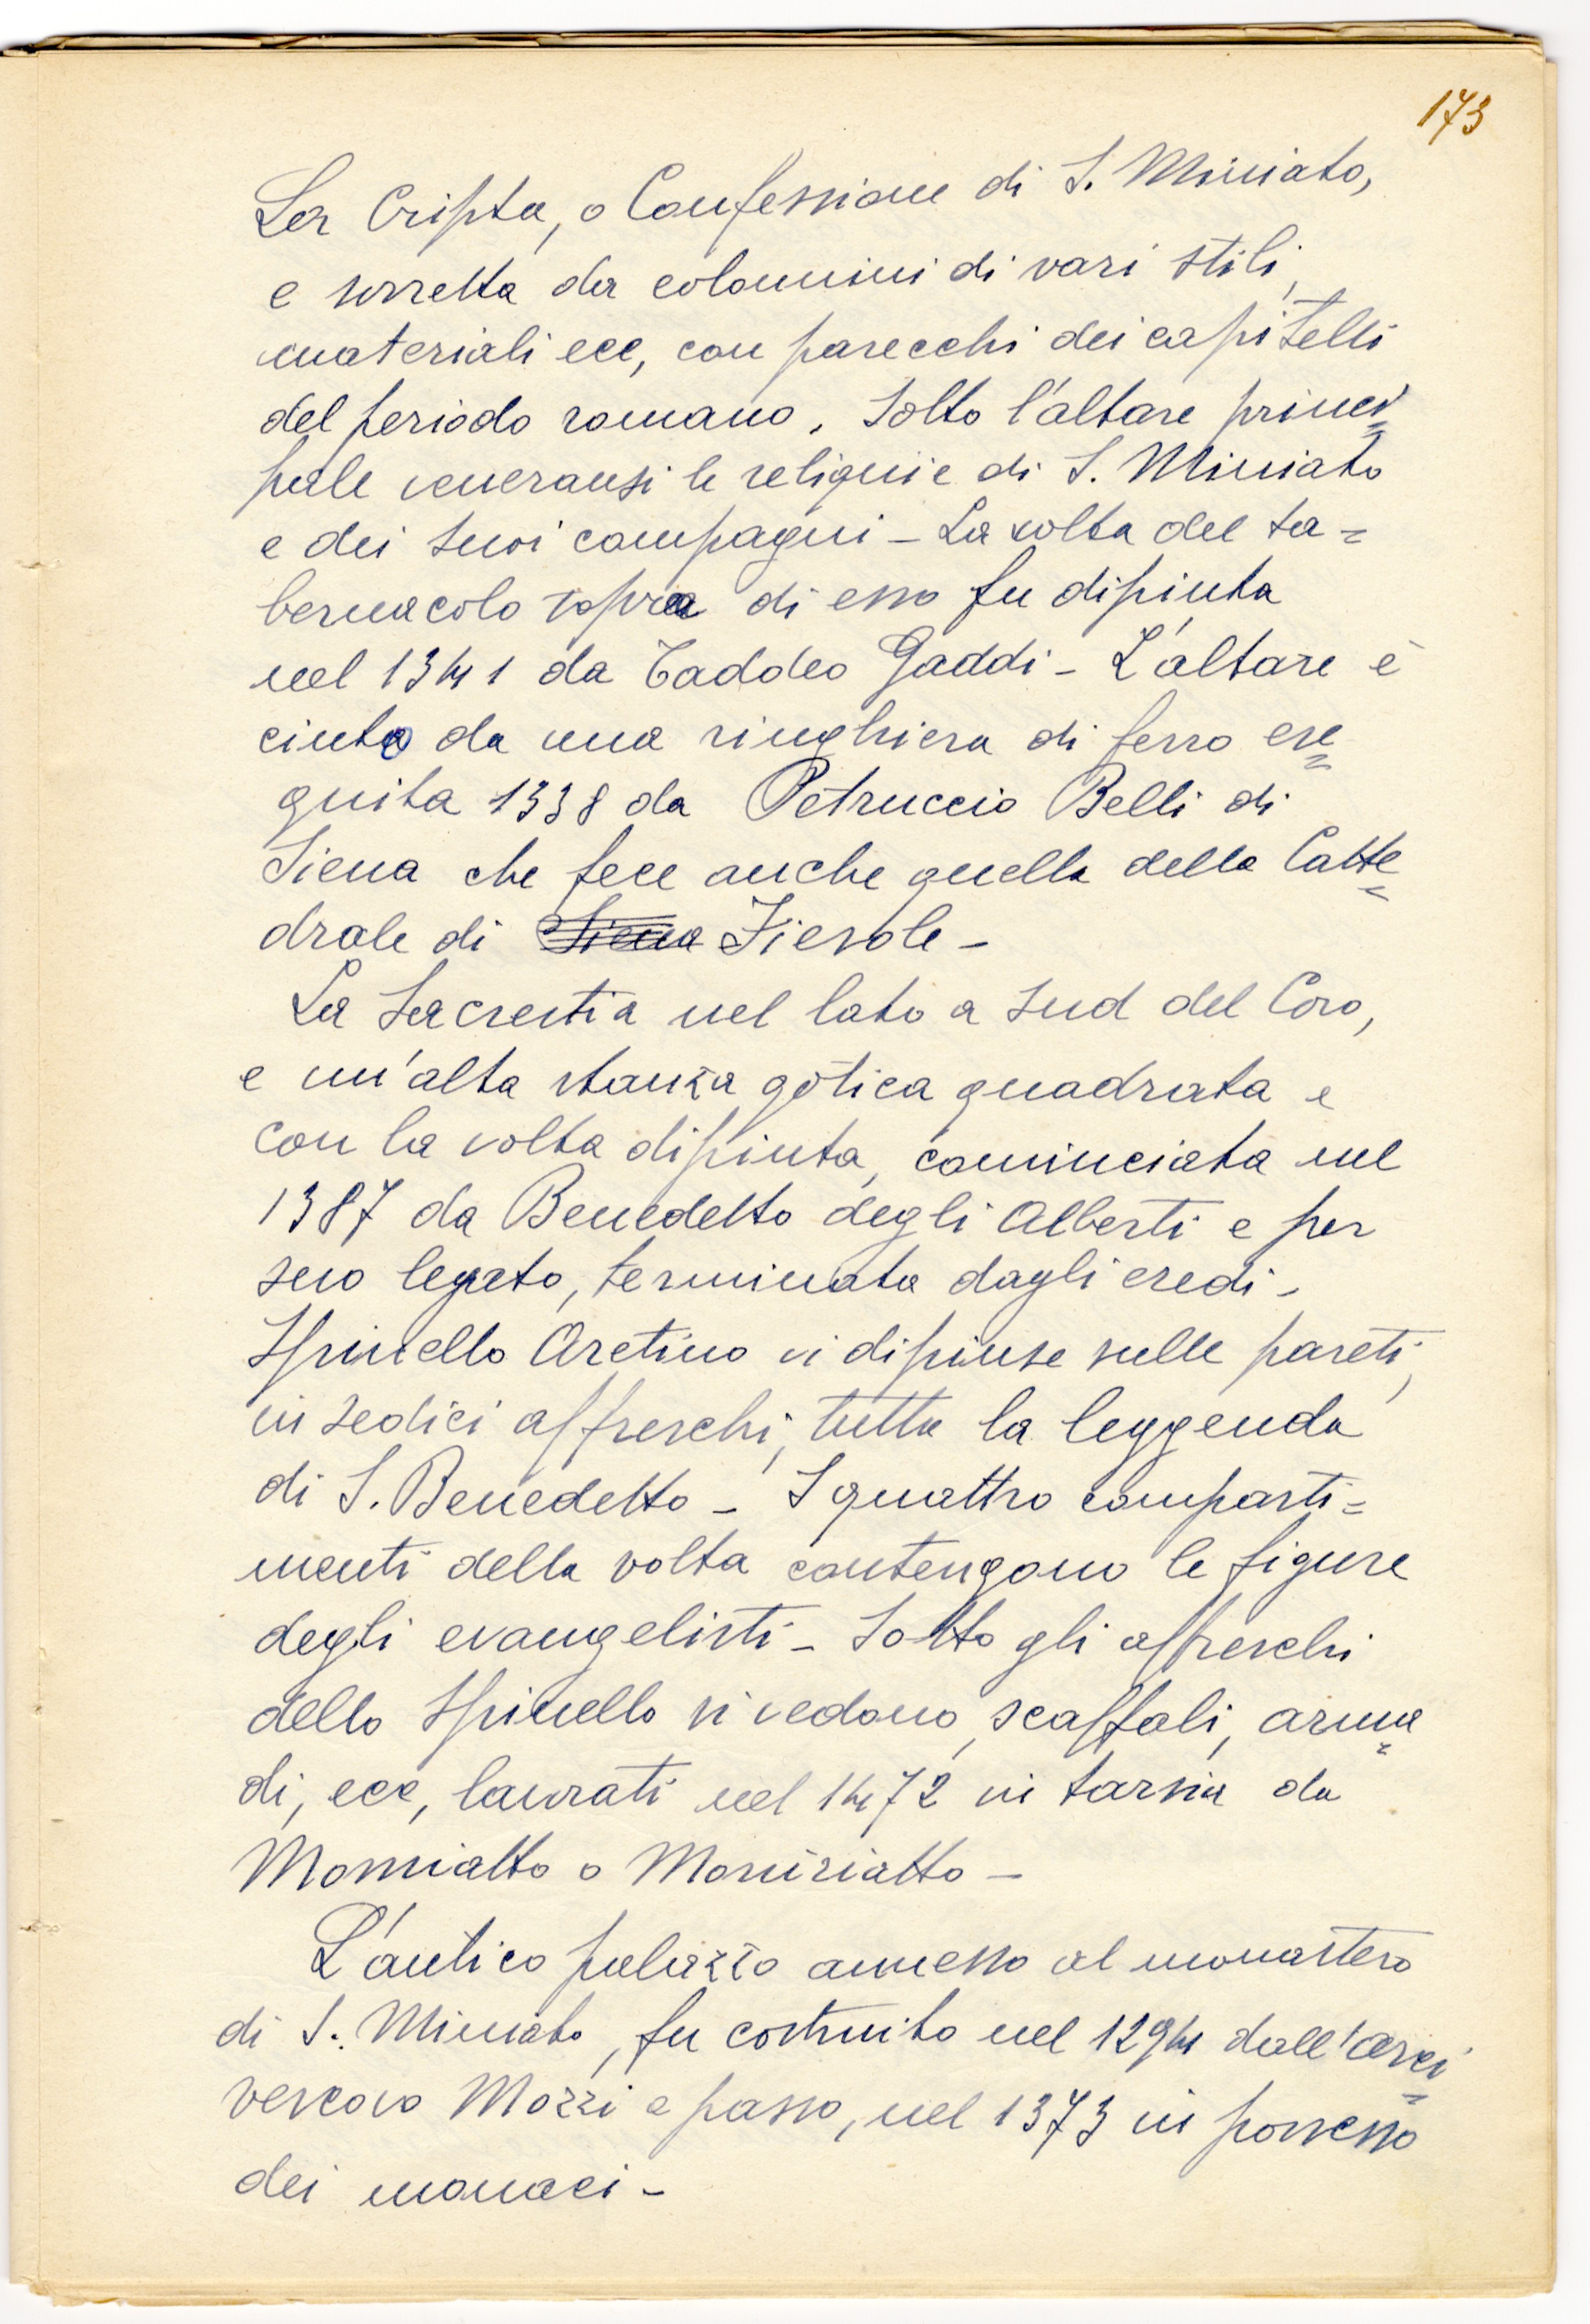 173
La Cripta, o Confessione di S. Miniato,
e sorretta da colonnini di vari stili,
materiali ecc, con parecchi dei capitelli
del periodo romano. Sotto l'altare princi=
pale veneransi le reliquie di S. Miniato
e dei suoi compagni - La volta del ta=
bernacolo sopra di esso fu dipinta
nel 1341 da Taddeo Gaddi - L'altare è
cinto da una ringhiera di ferro ese=
guita 1338 da Petruccio Belli di
Siena che fece anche quella della Catte=
drale di Siena Fiesole -
La Sacrestia nel lato a sud del Coro,
e un'alta stanza gotica quadrata e
con la volta dipinta, cominciata nel
1387 da Benedetto degli Alberti e per
suo legato, terminata dagli eredi -
Spinello Aretino vi dipinse sulle pareti,
in sedici affreschi, tutta la leggenda
di S. Benedetto - I quattro comparti=
menti della volta contengono le figure
degli evangelisti - Sotto gli affreschi
dello Spinello si vedono, scaffali, arma=
di, ecc, lavorati nel 1472 in tarsia da
Monciatto o Moniziatto -
L'antico palazzo annesso al monastero
di S. Miniato, fu costruito nel 1294 dall'arci=
vescovo Mozzi e passo, nel 1373 in possesso
dei monaci -